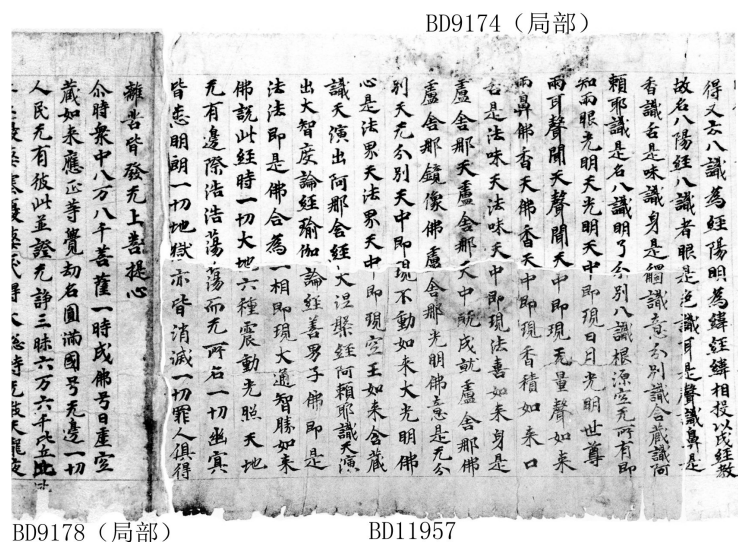 BD9174（局部）
得又云八識為經陽明為緯經緯相投以成經教
故名八陽經八識者眼是色識耳是聲識鼻是
香識舌是味識身是觸識意分別識含藏識阿
賴耶識是名八識明了分別八識根源空无所有即
知兩眼光明天光明天中即現日月光明世尊
兩耳聲聞天聲聞天中即現无量聲如來
兩鼻佛香天佛香天中即現香積如來口
舌是法味天法味天中即現法喜如來身是
盧舍那天盧舍那天中成就盧舍那佛
盧舍那鏡像佛盧舍那光明佛意是无分
別天无分別天中即現不動如來大光明佛
心是法界天法界天中即現空王如來含藏
識天演出阿那含經大涅槃經阿賴耶識天演
出大智度論經瑜伽論經善男子佛即是
法法即是佛合為一相即現大通智勝如來
佛說此經時一切大地六種震動光照天地
无有邊際浩浩蕩蕩而无所名一切幽冥
皆悉明朗一切地獄亦皆消滅一切罪人俱得
離苦皆發无上菩提心
尒時衆中八万八千菩薩一時成佛号曰虛空
藏如來應正等覺劫名圓滿國号无邊一切
人民无有彼此並證无諍三昧六万六千比丘比
BD9178（局部）
BD11957